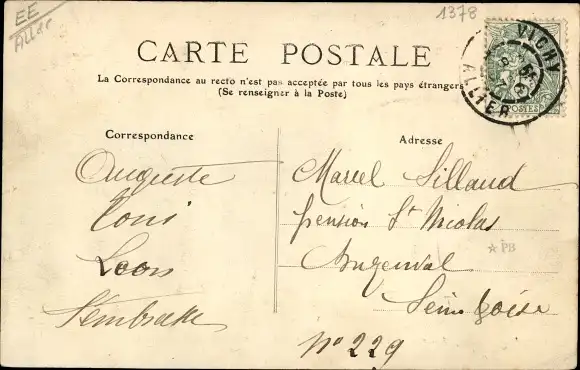 EE
Allier
1378
CARTE POSTALE
La Correspondance au recto n'est pas acceptée par tous les pays étrangers
(Se renseigner à la Poste)
VICHY
ALLIER
POSTES
Correspondance
Auguste
Léon
Adresse
Marcel Sillaud
pension St Nicolas
Buzenval
Seine & Oise
N° 229
* PB